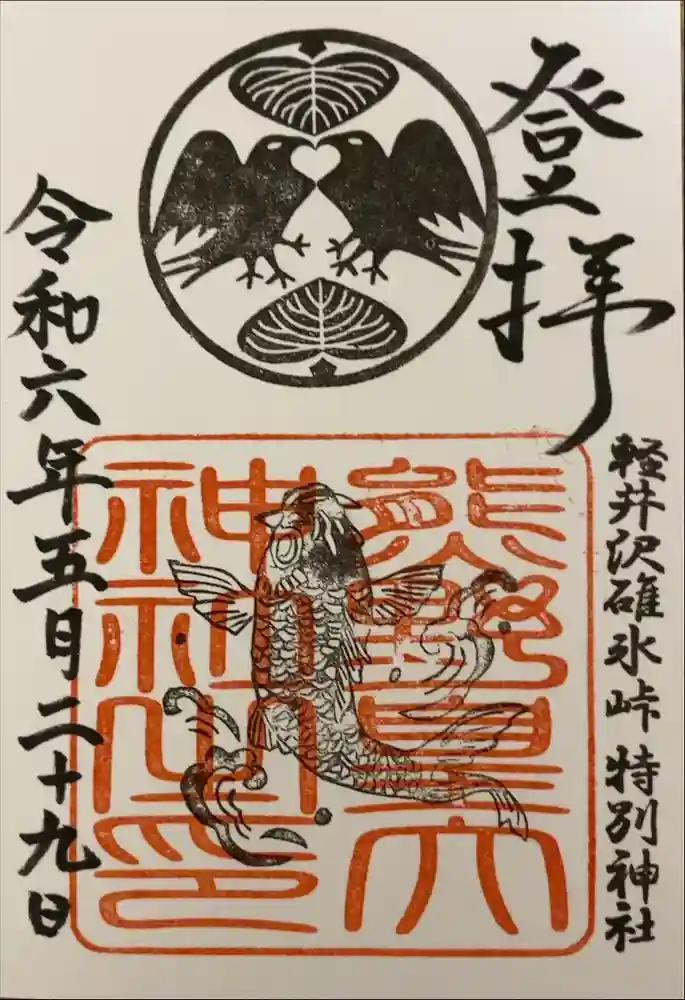 登拝
軽井沢碓氷峠特別神社
熊野皇大
神社之印
令和六年五月二十九日